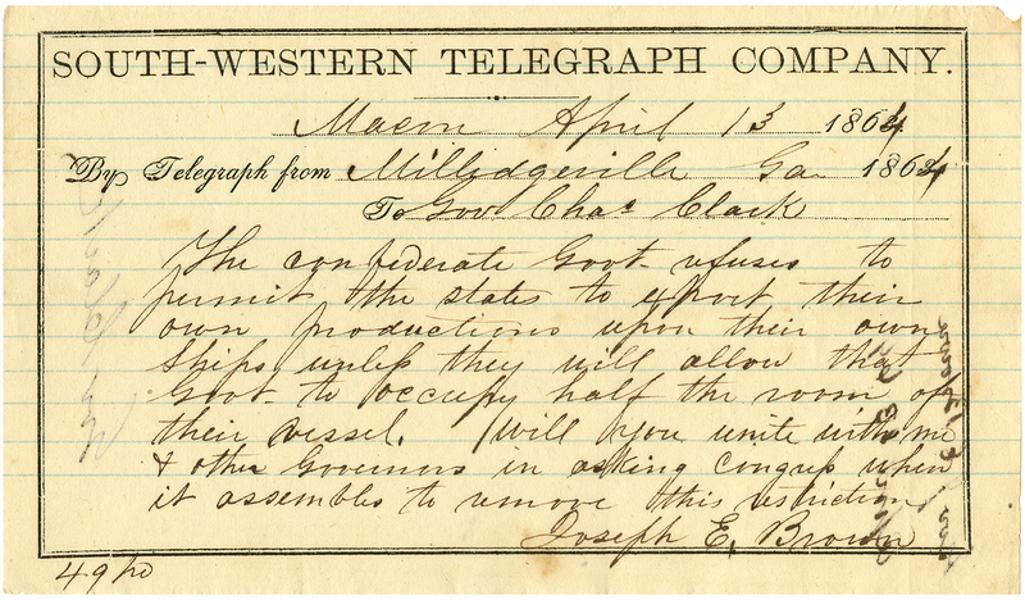 SOUTH-WESTERN TELEGRAPH COMPANY.
Macon April 13 1864
By Telegraph from Milledgeville Ga 1864
To Gov Chas Clark
The confederate Govt refuses to
permit the states to export their
own productions upon their own
ships unless they will allow that
Govt to occupy half the room of
their vessel. Will you unite with me
& other Governors in asking congress when
it assembles to remove this restriction
Joseph E, Brown
49 pd